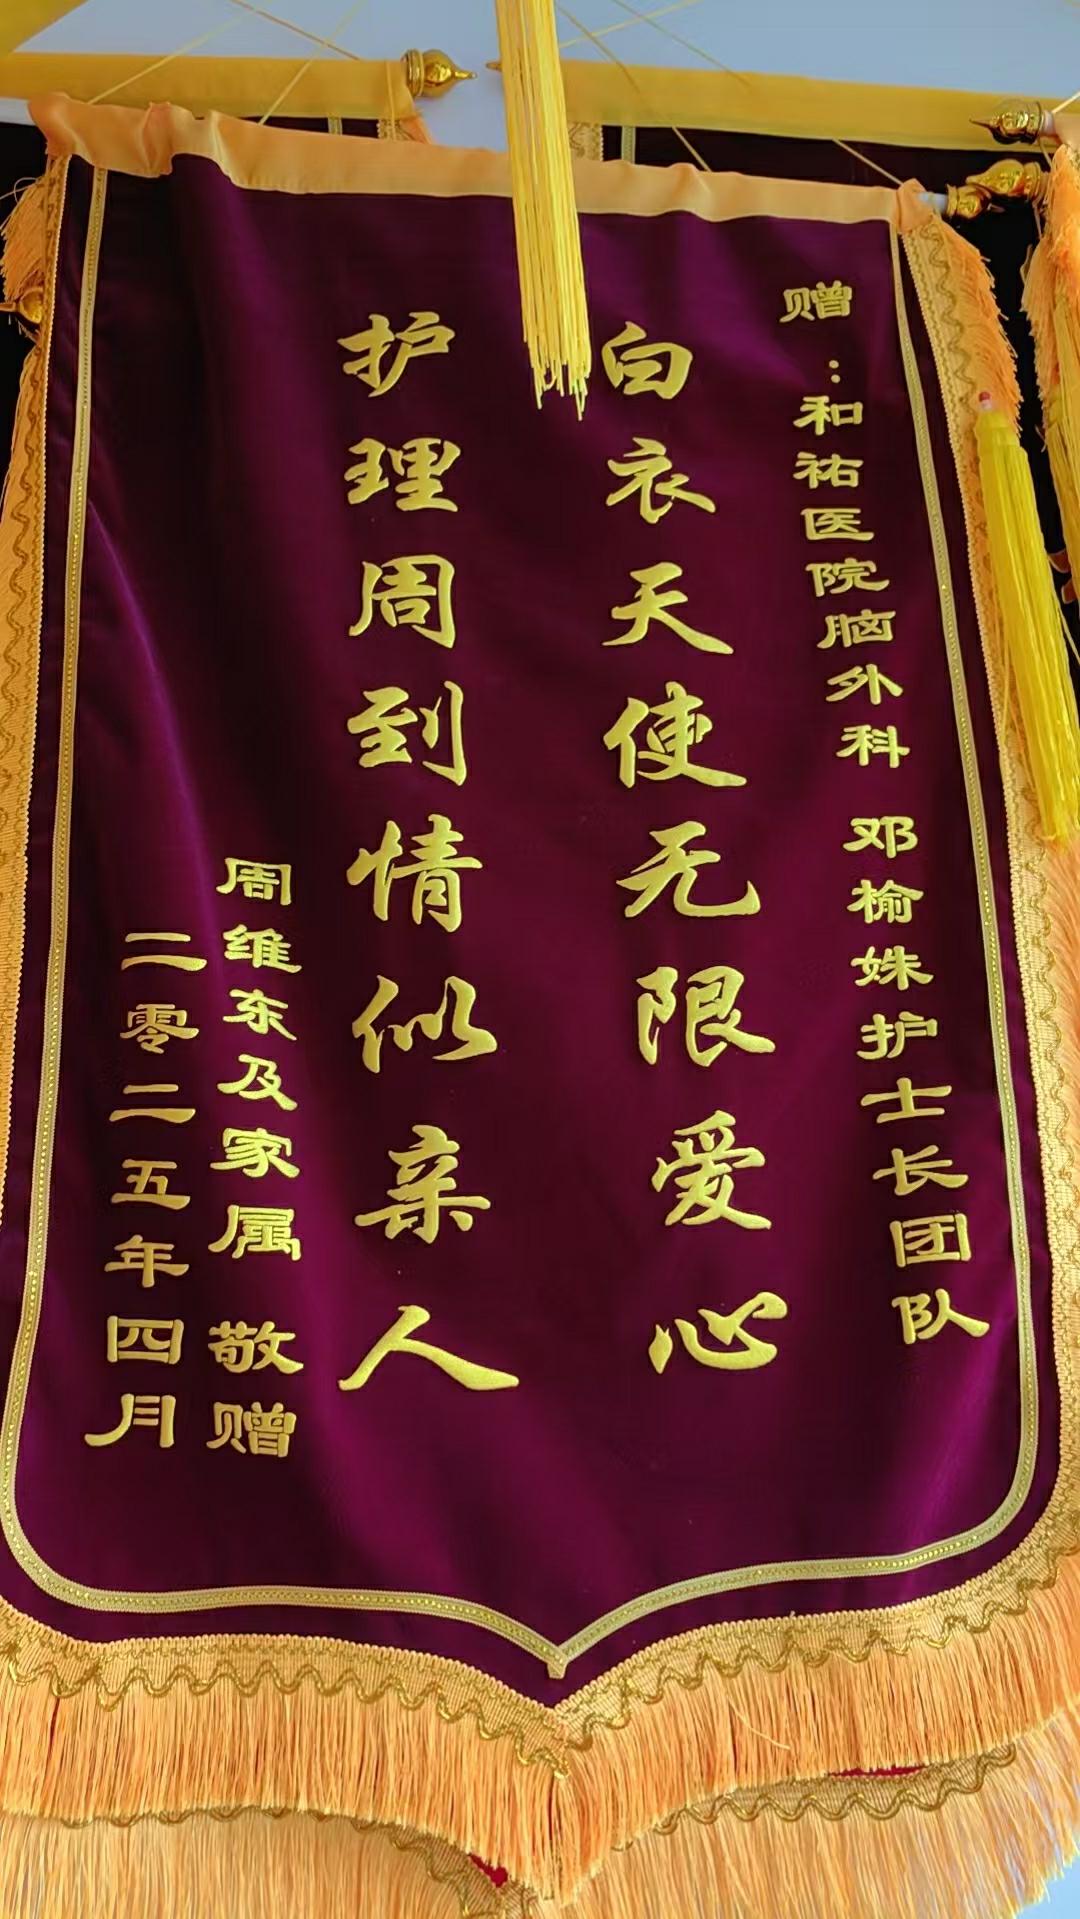 赠：和祐医院脑外科 邓榆姝护士长团队
白衣天使无限爱心
护理周到情似亲人
周维东及家属 敬赠
二零二五年四月